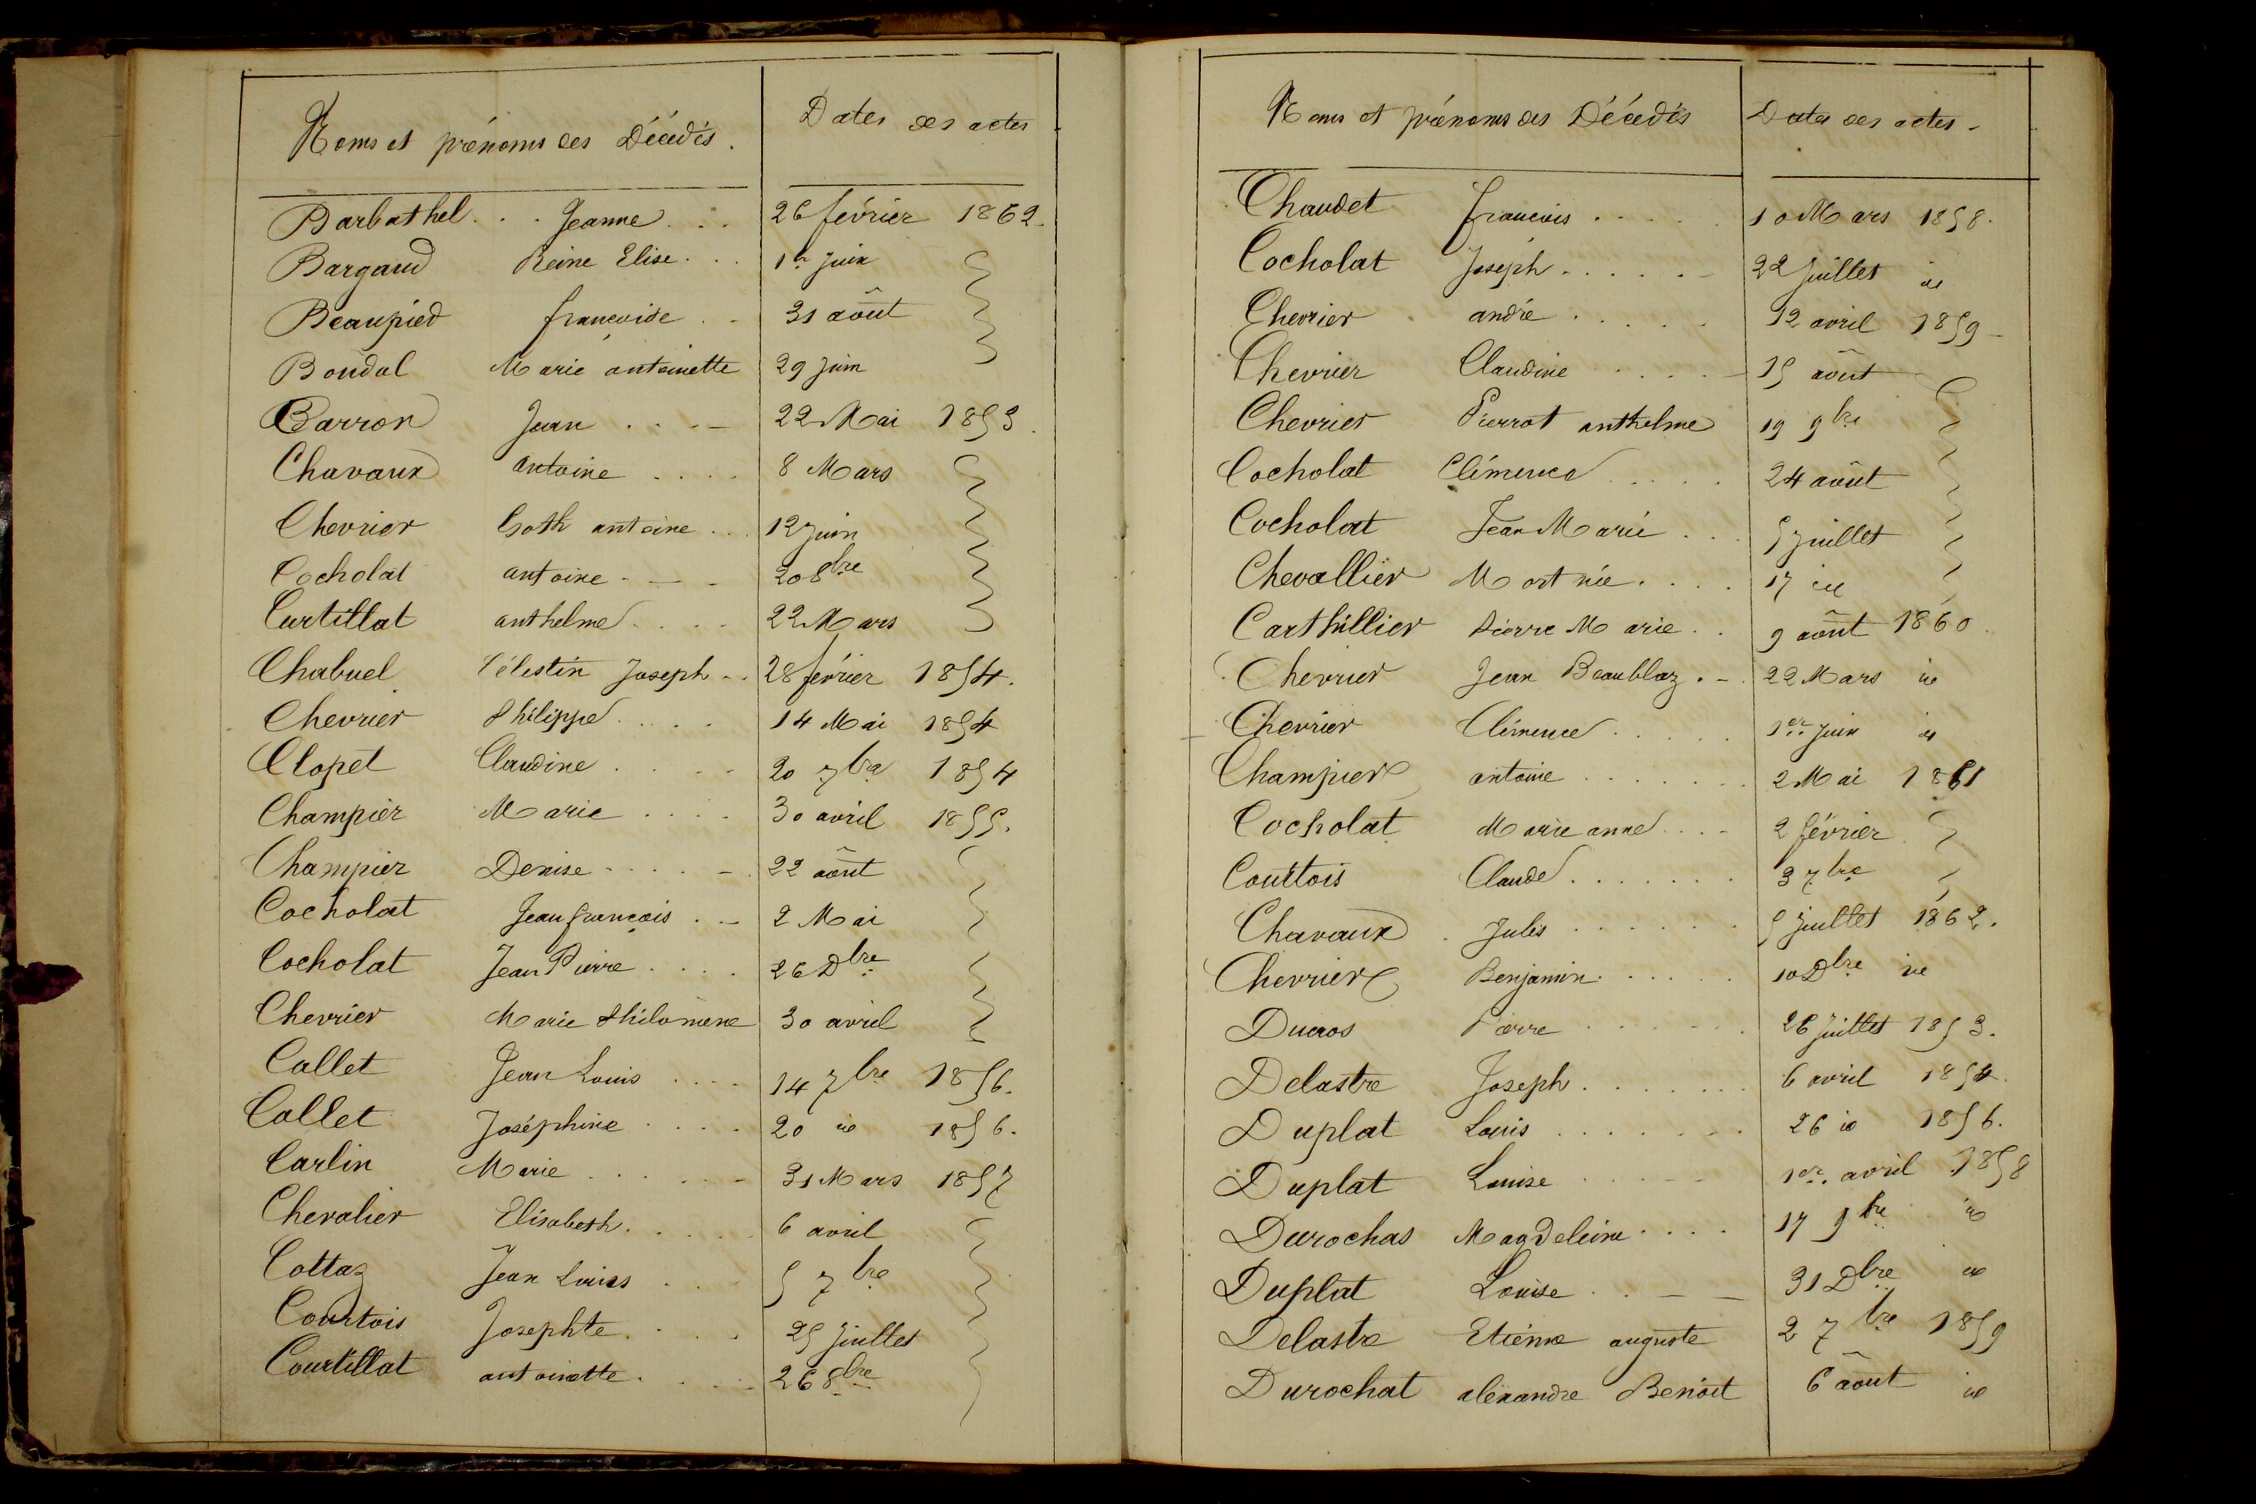 Noms et prénoms des Décédés.
Dates des actes
Barbathel . . . Jeanne . . . 26 février 1862.
Bargaud Reine Elise . . . 1er juin
Beaupied francoise . . 31 août
Boudol Marie antoinette 29 juin
Barron Jean . . . . 22 Mai 1853.
Chavaux antoine . . . . 8 Mars
Chevrier Goth antoine . . . 12 juin
Cocholat antoine . . . 20 8bre
Curtillat anthelme . . . . 22 Mars
Chabuel Célestin Joseph . . 28 février 1854.
Chevrier Philippe . . . . 14 Mai 1854
Clopet Claudine . . . . 20 7bre 1854
Champier Marie . . . . 30 avril 1855.
Champier Denise . . . . . 22 août
Cocholat Jean françois . . 2 Mai
Cocholat Jean Pierre . . . . 26 Dbre
Chevrier Marie Philomène 30 avril
Collet Jean Louis . . . . 14 7bre 1856.
Collet Joséphine . . . . 20 id 1856.
Carlin Marie . . . . . . 31 Mars 1857
Chevalier Elisabeth . . . . . 6 avril
Cottaz Jean Louis . . . 5 7bre
Courtois Josephte . . . . 25 juillet
Courtillat antoinette . . . . 26 8bre
Noms et prénoms des Décédés
Dates des actes -
Chaudet francois . . . . . 10 Mars 1858.
Cocholat Joseph . . . . . - 22 juillet id
Chevrier andré . . . . . 12 avril 1859 -
Chevrier Claudine . . . . - 15 août
Chevrier Pierrot anthelme 19 9bre
Cocholat Clémence . . . . . 24 août
Cocholat Jean Marie . . . 5 juillet
Chevallier Mort née . . . . 17 id
Carthillier Pierre Marie . . 9 août 1860
Chevrier Jean Beaublaz . - . 22 Mars id
Chevrier Clémence . . . . . 1er juin id
Champier antoine . . . . . . 2 Mai 1861
Cocholat Marie anne . . . - 2 février
Couttois Claude . . . . . . . 3 7bre
Chavaux . Jules . . . . . . . 5 juillet 1862.
Chevrier Benjamin . . . . . 10 Dbre id
Ducros Pierre . . . . . . 26 juillet 1853.
Delastre Joseph . . . . . . . 6 avril 1854.
Duplat Louis . . . . . . . 26 id 1856.
Duplat Louise . . . . - 1er. avril 1858
Durochas Magdeleine . . . . 17 9bre id
Duplat Louise . . - - 31 Dbre id
Delastre Etienne auguste 2 7bre 1859
Durochat alexandre Benoit 6 août id